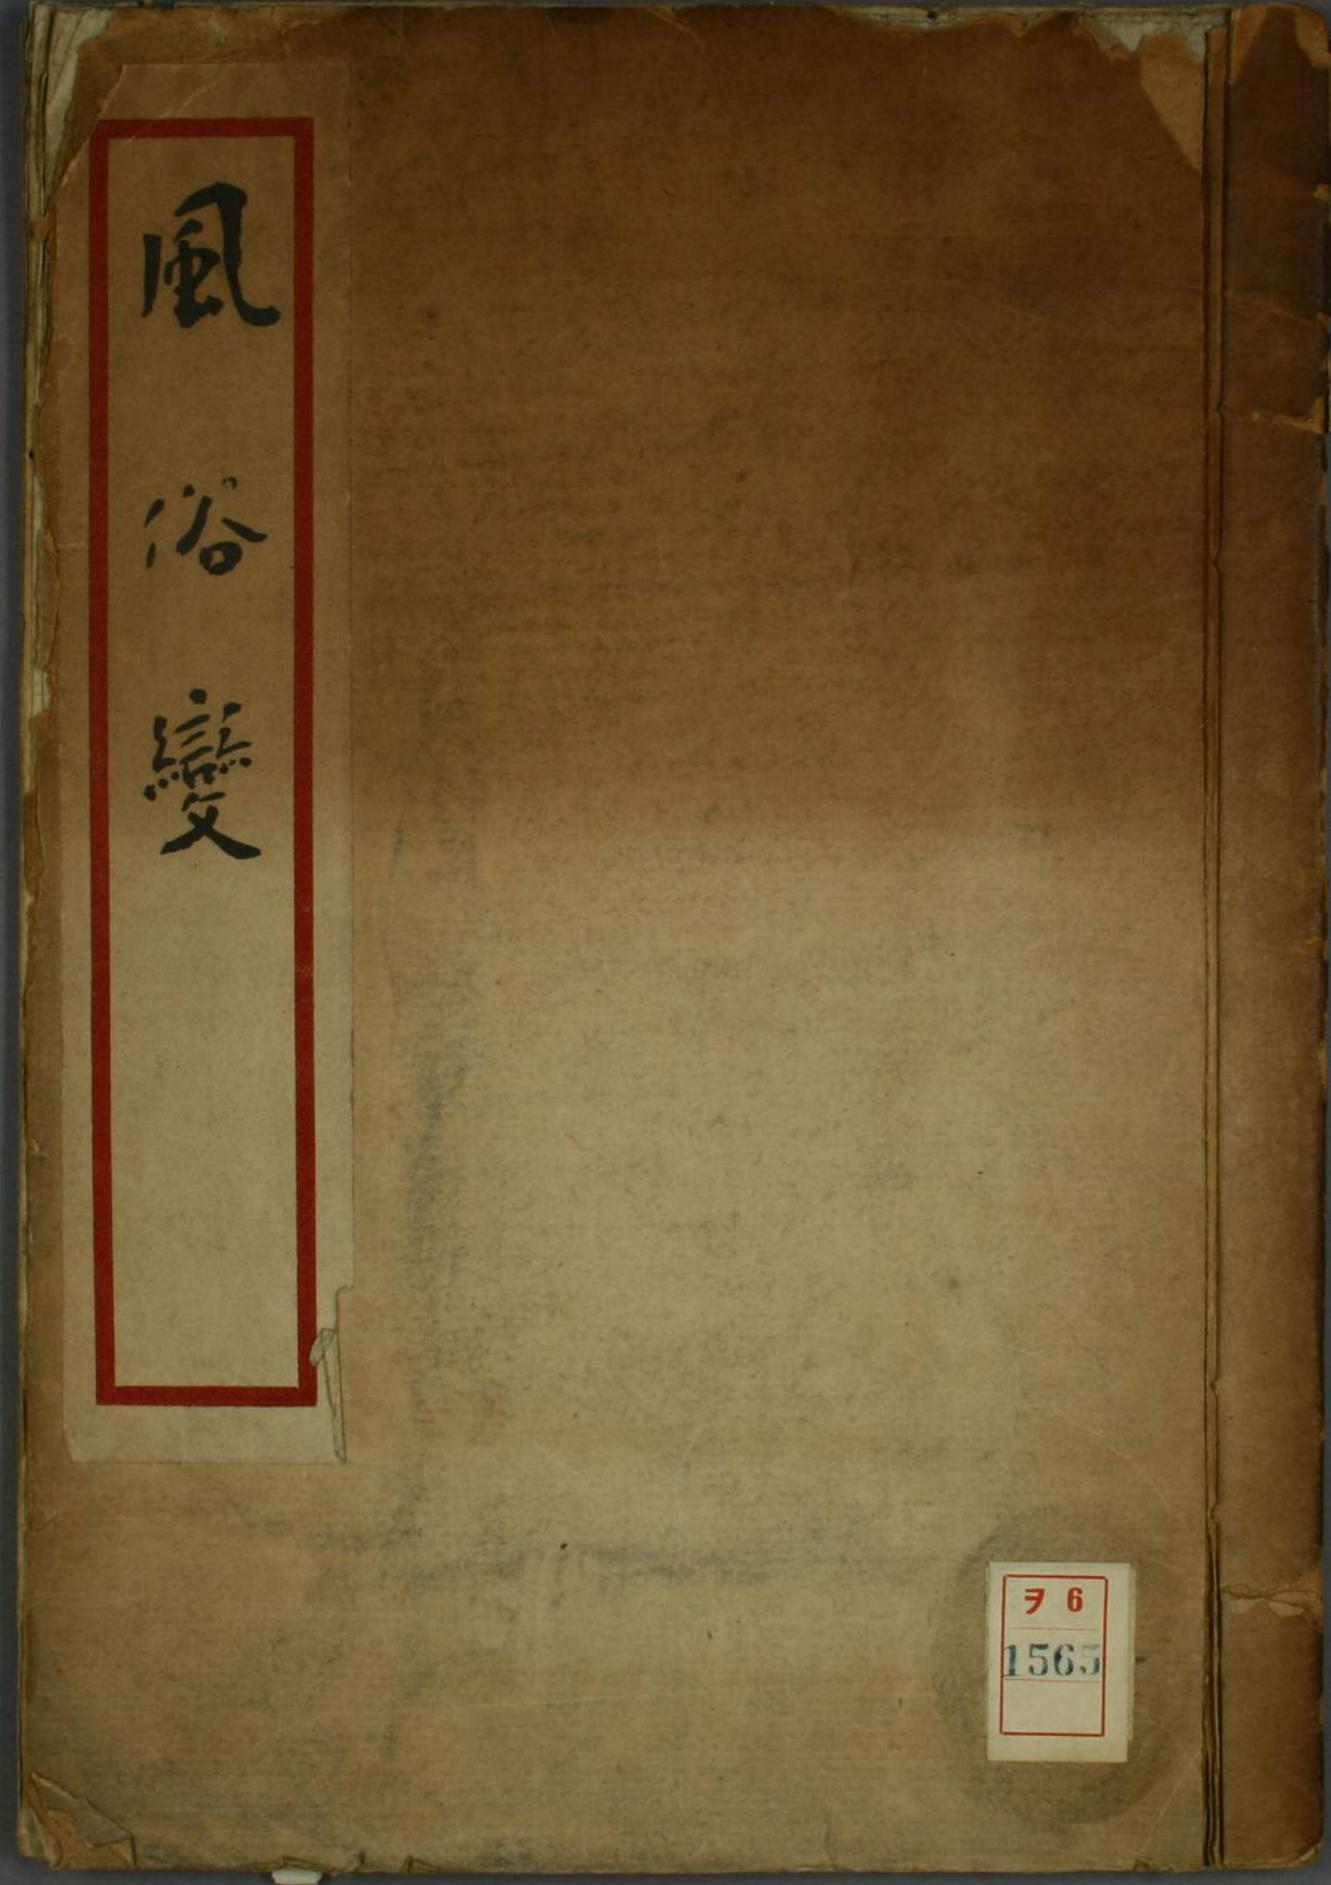 風俗變
ヲ 6
1565